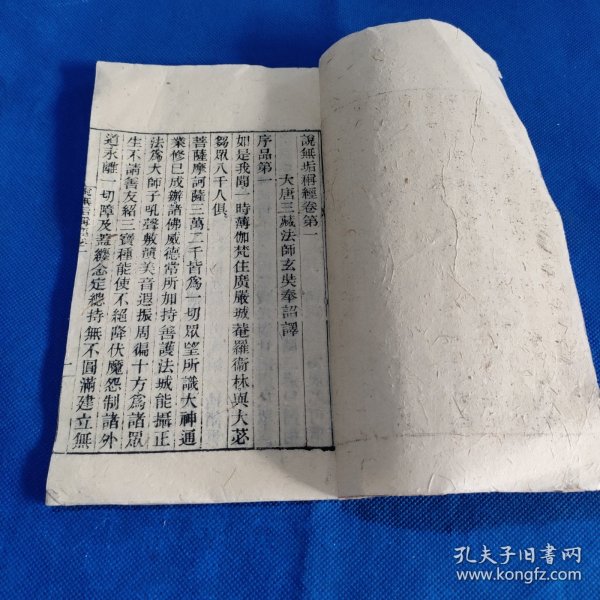 說無垢稱經卷第一
大唐三藏法師玄奘奉詔譯
序品第一
如是我聞一時薄伽梵住廣嚴城菴羅衞林與大苾
芻眾八千人俱
菩薩摩訶薩三萬二千皆爲一切眾望所識大神通
業修已成辦諸佛威德常所加持善護法城能攝正
法爲大師子吼聲敷演美音遐振周徧十方爲諸眾
生不請善友紹三寶種能使不絕降伏魔怨制諸外
道永離一切障及蓋纏念定總持無不圓滿建立無
孔夫子旧书网
www.kongfz.com